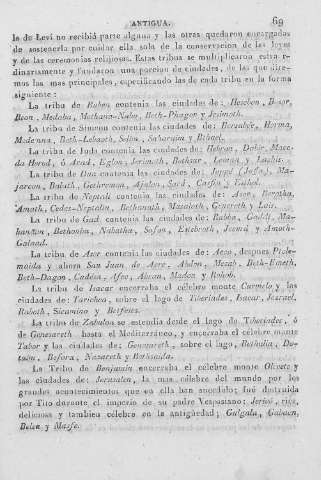 ANTIGUA. 69
la de Leví no recibiá parte alguna y las otras quedaron encargadas
de sostenerla por cuidar ella sola de la conservacion de las leyes
y de las ceremonias religiosas. Estas tribus se multiplicaron estra-
dinariamente y fundaron una porcion de ciudades, de las que dire-
mos las mas principales, especificando las de cada tribu en la forma
siguiente:
La tribu de Ruben contenia las ciudades de: Hesebon, Bosor,
Beon, Medaba, Mathana-Nabo, Beth-Phagor y
La tribu de Simeon contenia las ciudades de: Bersabée, Horma,
Medemna, Beth-Lebaoth, Selim, Saharaim y
La tribu de Juda contenia las ciudades de: Hebron, Dabir, Mace-
da Hered, ó Arad, Eglon, Jerimoth, Bathsur, y
La tribu de Dan contenia las ciudades de: Joppé (Jafa),
Balath, Gethremon, Ajalon, y
La tribu de Neptali contenia las ciudades de:
Amath, y
La tribu de Gad contenia las ciudades de: Rabba, Ma-
hanaim, Bethonim, Nabatha, Sofan, y
La tribu de Aser contenia las ciudades de: Aeco, despues Ptole-
maida y ahora San Juan de Acre: Abdon, Beth-Emeth,
Beth-Dagon, Cadesa, Afec, Abran, Madon y Rohob.
La tribu de Isacar encerraba el célebre monte Carmelo y las
ciudades de: Tarichea, sobre el lago de Tiberiades, Isacar, Jesrael,
Rabath, Sicamino y
La tribu de Zabulon se estendia desde el lago de Tiberiades, ó
de Genesareth hasta el Mediterráneo, y encerraba el célebre monte
Tabor y las ciudades de: Genesareth, sobre el lago, Bethulia, Do-
Befora, Nasareth y Bethsaida.
La Tribu de Benjamin encerraba el célebre monte Olivete y
las ciudades de: Jerusalen, la mas célebre del mundo por los
grandes acontecimientos que en ella han sucedido; fué destruida
por Tito durante el imperio de su padre Vespasiano; Jericó, rica,
deliciosa y tambien célebre en la antigüedad; Galgala, Gabaon,
y